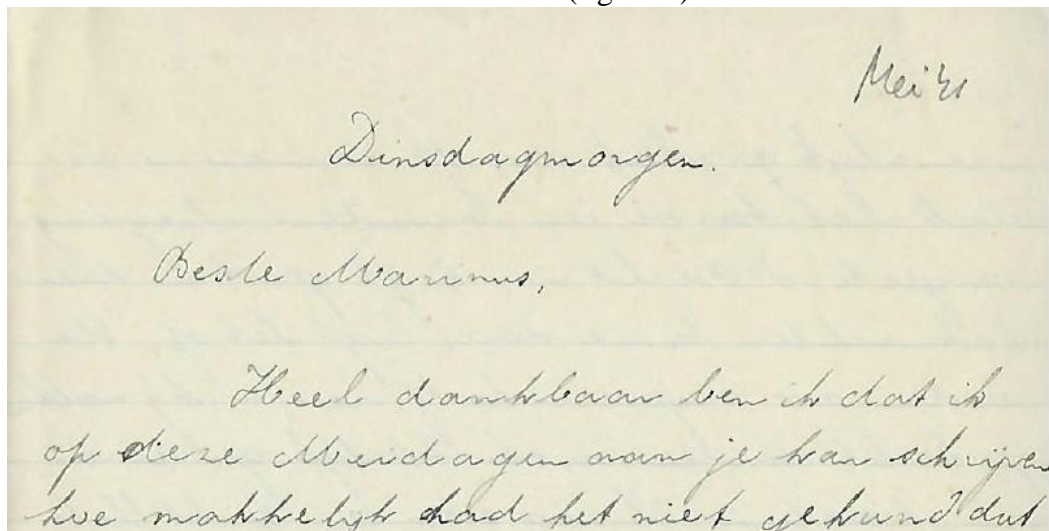 Mei '41
Dinsdagmorgen.
Beste Marinus,
Heel dankbaar ben ik dat ik
op deze Meidagen aan je kan schrijven
hoe makkelijk had het niet gekund dat